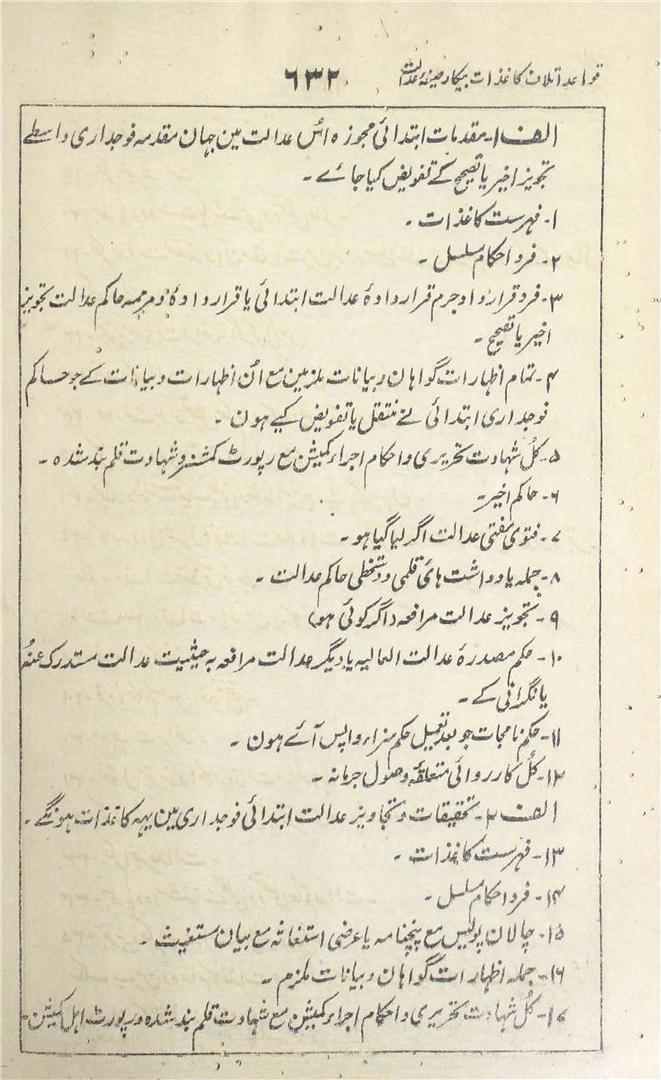 قواعد اتلاف کاغذات بیکار صیغۂ عدالت ۶۳۲
الف ۱۔ مقدمات ابتدائی مجوزہ اُس عدالت مین جہان مقدمہ فوجداری واسطے
تجویز اخیر یا تصحیح کے تفویض کیا جائے۔
۱۔ فہرست کاغذات۔
۲۔ فرد احکام مسلسل۔
۳۔ فرد قرارداد جرم قراردادۂ عدالت ابتدائی یا قراردادۂ و مرممہ حاکم عدالت تجویز
اخیر یا تصحیح۔
۴۔ تمام اظہارات گواہان و بیانات ملزمین مع اُن اظہارات و بیانات کے جو حاکم
فوجداری ابتدائی نے منتقل یا تفویض کیے ہون۔
۵۔ کل شہادت تحریری و احکام اجراء کمیشن مع رپورٹ کمشنر و شہادت قلم بند شدہ۔
۶۔ حاکم اخیر۔
۷۔ فتوی مفتی عدالت اگر لیا گیا ہو۔
۸۔ جملہ یادداشت ہائی قلمی و دستخطی حاکم عدالت۔
۹۔ تجویز عدالت مرافعہ (اگر کوئی ہو)
۱۰۔ حکم مصدرۂ عدالت العالیہ یا دیگر عدالت مرافعہ بہ حیثیت عدالت مستدرک عنہُ
یا نگرانی کے۔
۱۱۔ حکم نامجات جو بعد تعمیل حکم سزاء واپس آئے ہون۔
۱۲۔ کل کارروائی متعلقہ وصول جرمانہ۔
الف ۲۔ تحقیقات و تجاویز عدالت ابتدائی فوجداری مین یہہ کاغذات ہونگے۔
۱۳۔ فہرست کاغذات۔
۱۴۔ فرد احکام مسلسل۔
۱۵۔ چالان پولیس مع پنچنامہ یا عرضی استغاثہ مع بیان مستغیث۔
۱۶۔ جملہ اظہارات گواہان و بیانات ملزم۔
۱۷۔ کل شہادت تحریری و احکام اجراء کمیشن مع شہادت قلم بند شدہ و رپورٹ اہل کمیشن۔